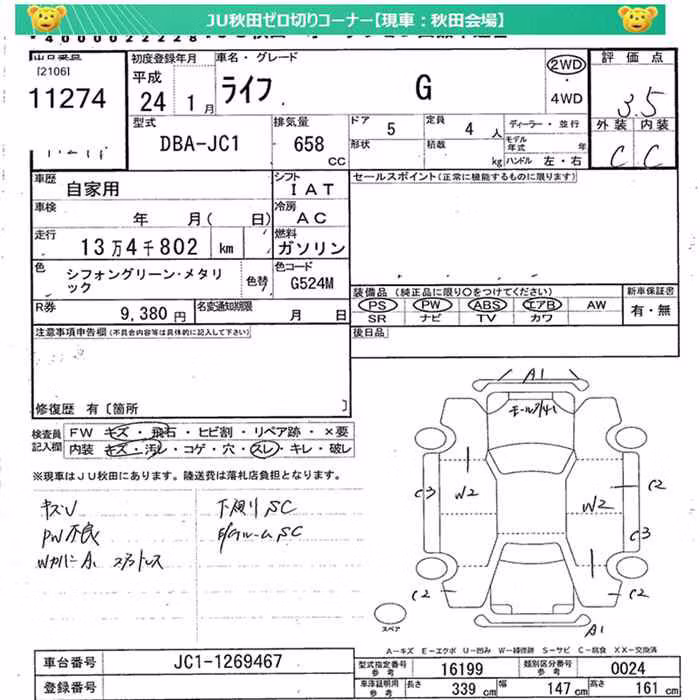 JU秋田ゼロ切りコーナー【現車：秋田会場】
[2106]
11274
初度登録年月
平成
24 1月
車名・グレード
ライフ G
2WD
・
4WD
評価点
3.5
外装 内装
C C
型式
DBA-JC1
排気量
658
CC
ドア 5
定員 4 人
形状
積載 kg
ディーラー・並行
モデル年式 年
ハンドル 左・右
車歴
自家用
シフト
IAT
車検
年 月( 日)
冷房
AC
走行
13万4千802 km
燃料
ガソリン
色
シフォングリーン・メタリック
色替
色コード
G524M
R券
9,380 円
名変通知期限
月 日
セールスポイント(正常に機能するものに限ります)
装備品 (純正品に限り○をつけてください)
PS PW ABS エアB AW
SR ナビ TV カワ
新車保証書
有・無
後日品
注意事項申告欄(不具合内容等は具体的に記入して下さい)
修復歴 有〔箇所 〕
検査員
記入欄
FW キズ・飛石・ヒビ割・リペア跡・×要
内装 キズ・汚レ・コゲ・穴・スレ・キレ・破レ
※現車はJU秋田にあります。陸送費は落札店負担となります。
キズU
PW不良
下廻りSC
A1
C3
W2
W2
C2
C3
C2
C2
A1
スペア
A－キズ E－エクボ U－凹み W－補修跡 S－サビ C－腐食 XX－交換済
車台番号 JC1-1269467
登録番号
型式指定番号
参考
16199
類別区分番号
参考
0024
車庫証明用
参考
長さ 339 cm
幅 147 cm
高さ 161 cm